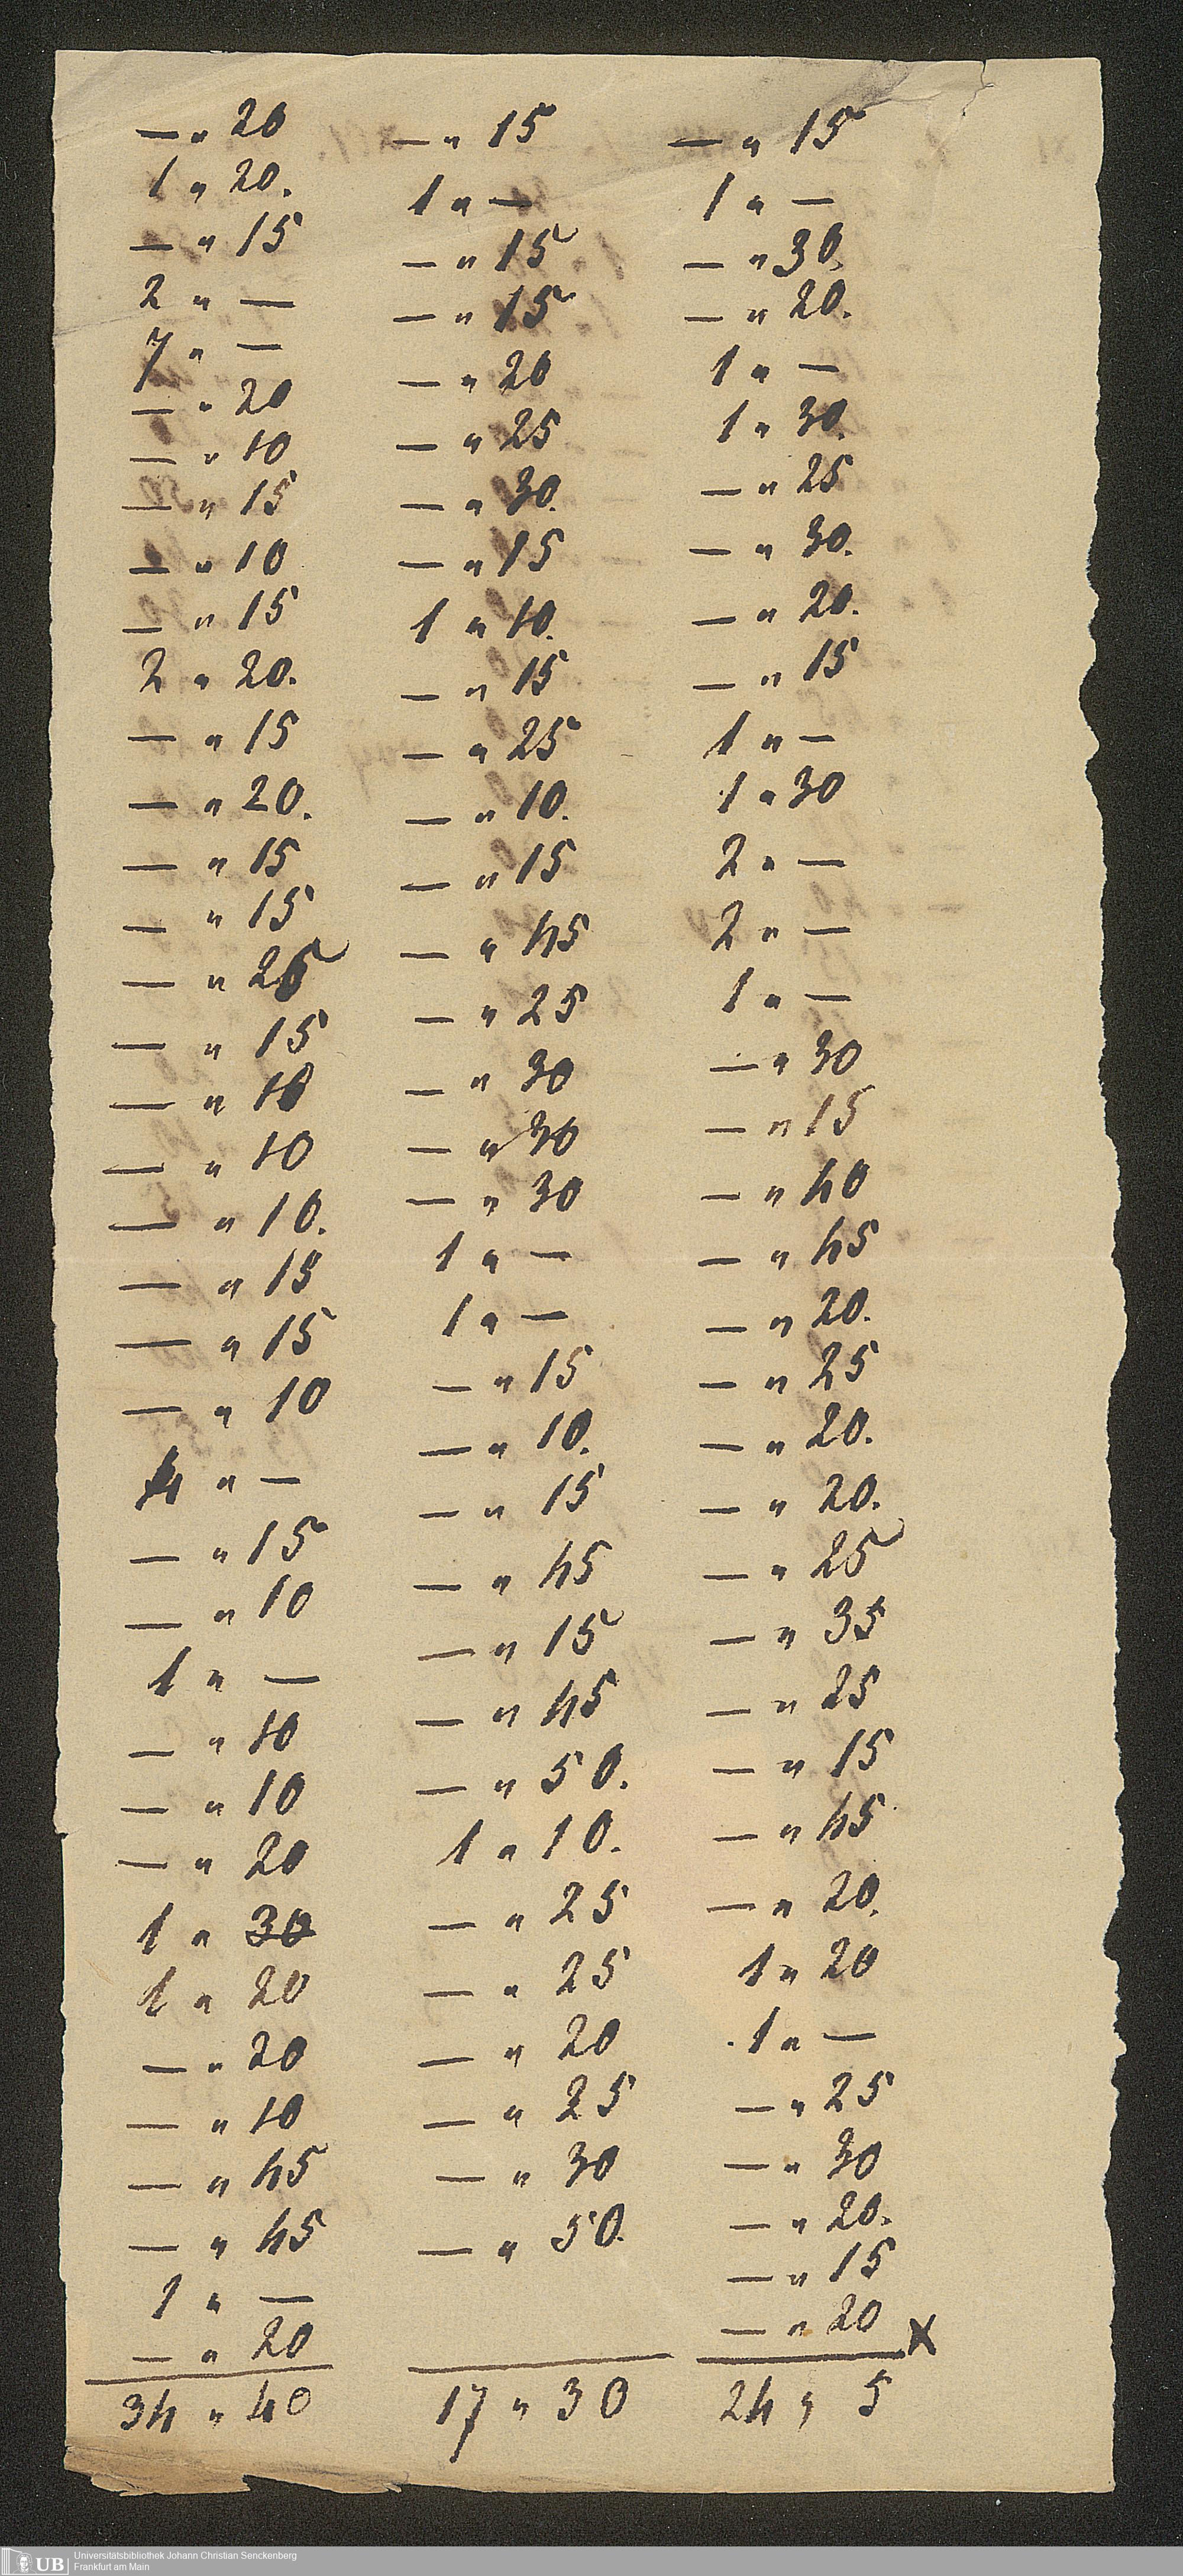 — " 20
1 " 20.
— " 15
2 " —
7 " —
— " 20
— " 10
— " 15
— " 10
— " 15
2 " 20.
— " 15
— " 20.
— " 15
— " 15
— " 25
— " 15
— " 10
— " 10
— " 10.
— " 15
— " 15
— " 10
4 " —
— " 15
— " 10
1 " —
— " 10
— " 10
— " 20
1 " 30
1 " 20
— " 20
— " 10
— " 45
— " 45
1 " —
— " 20
34 " 40
— " 15
1 " —
— " 15
— " 15
— " 20
— " 25
— " 30.
— " 15
1 " 10.
— " 15
— " 25
— " 10.
— " 15
— " 45
— " 25
— " 30
— " 30
— " 30
1 " —
1 " —
— " 15
— " 10.
— " 15
— " 45
— " 15
— " 45
— " 50.
1 " 10.
— " 25
— " 25
— " 20
— " 25
— " 30
— " 50.
17 " 30
— " 15
1 " —
— " 30.
— " 20.
1 " —
1 " 30.
— " 25
— " 30.
— " 20.
— " 15
1 " —
1 " 30
2 " —
2 " —
1 " —
— " 30
— " 15
— " 40
— " 45
— " 20.
— " 25
— " 20.
— " 20.
— " 25
— " 35
— " 25
— " 15
— " 45
— " 20.
1 " 20
1 " —
— " 25
— " 30
— " 20.
— " 15
— " 20 x
24 " 5
UB Universitätsbibliothek Johann Christian Senckenberg
Frankfurt am Main